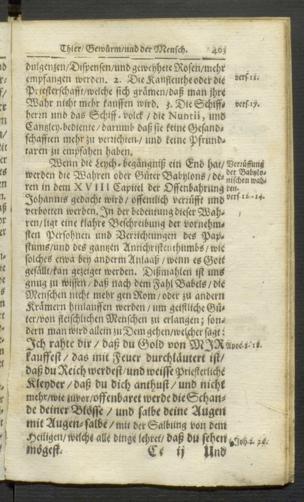 Thier/ Gewürm/ und der Mensch. 403
dulgenzen/ Dispensen/ und geweyhete Rosen/ mehr
empfangen werden. 2. Die Kaufleuthe oder die vers 11.
Priesterschafft/ welche sich grämen/ daß man ihre
Wahr nicht mehr kauffen wird. 3. Die Schiff- vers 17.
herrn und das Schiff-volck/ die Nuntii, und
Cantzley-bediente/ darumb daß sie keine Gesand-
schafften mehr zu verrichten/ und keine Pfrund-
waren zu empfahen haben.
Wenn die Leych-begängnüß ein End hat/ Verruffung
werden die Wahren oder Güter Babylons/ de- der Babylo-
ren in dem XVIII Capitel der Offenbahrung nischen wah-
Johannis gedacht wird/ offentlich verrüfft und ren.
verbotten werden. In der bedeutung dieser Wah- vers 12-14.
ren/ ligt eine klahre Beschreibung der vornehm-
sten Persohnen und Verrichtungen des Pap-
stums/ und des gantzen Antichristenthumbs/ wie
solches etwa bey anderm Anlaaß/ wenn es Gott
gefällt/ kan gezeiget werden. Dißmahlen ist uns
gnug zu wissen/ daß nach dem Fahl Babels/ die
Menschen nicht mehr gen Rom/ oder zu andern
Krämern hinlauffen werden/ um geistliche Gü-
ter/ von fleischlichen Menschen zu erlangen; son-
dern man wird allein zu Dem gehen/ welcher sagt:
Ich rahte dir/ daß du Gold von MIR Apoc. 3. 18.
kauffest/ das mit Feuer durchläutert ist/
daß du Reich werdest/ und weisse Priesterliche
Kleyder/ daß du dich anthust/ und nicht
mehr/ wie zuvor/ offenbaret werde die Schan-
de deiner Blösse/ und salbe deine Augen
mit Augen-salbe/ mit der Salbung von dem
Heiligen/ welche alle dinge lehret/ daß du sehen 1 Joh. 2. 20.
mögest. Cc ij Und